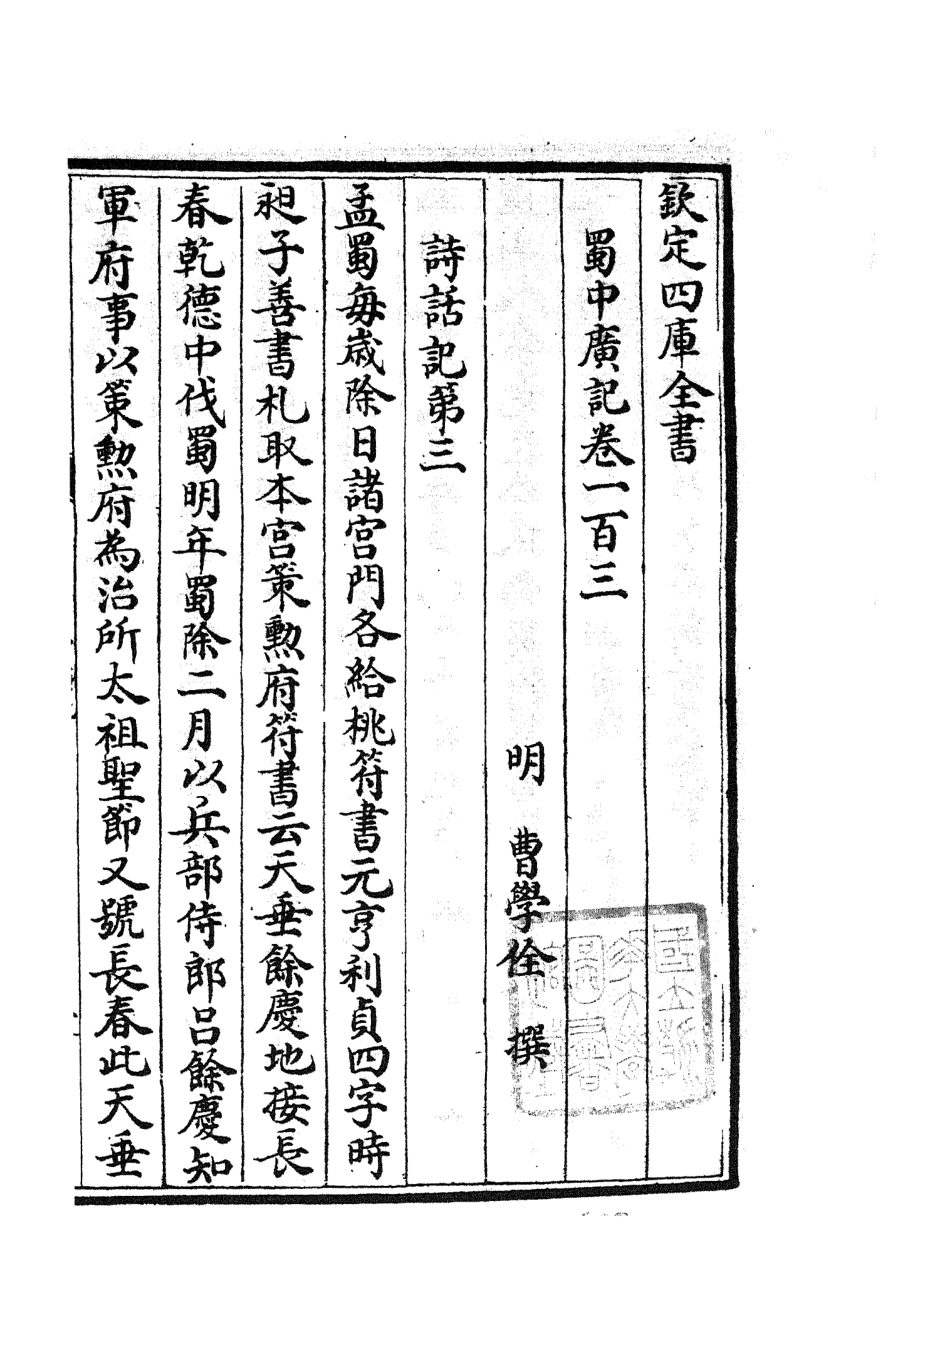 欽定四庫全書
蜀中廣記卷一百三
明 曹學佺 撰
詩話記第三
孟蜀每歲除日諸宮門各給桃符書元亨利貞四字時
昶子善書札取本宮策勲府符書云天垂餘慶地接長
春乾德中伐蜀明年蜀除二月以兵部侍郎呂餘慶知
軍府事以策勲府為治所太祖聖節又號長春此天垂